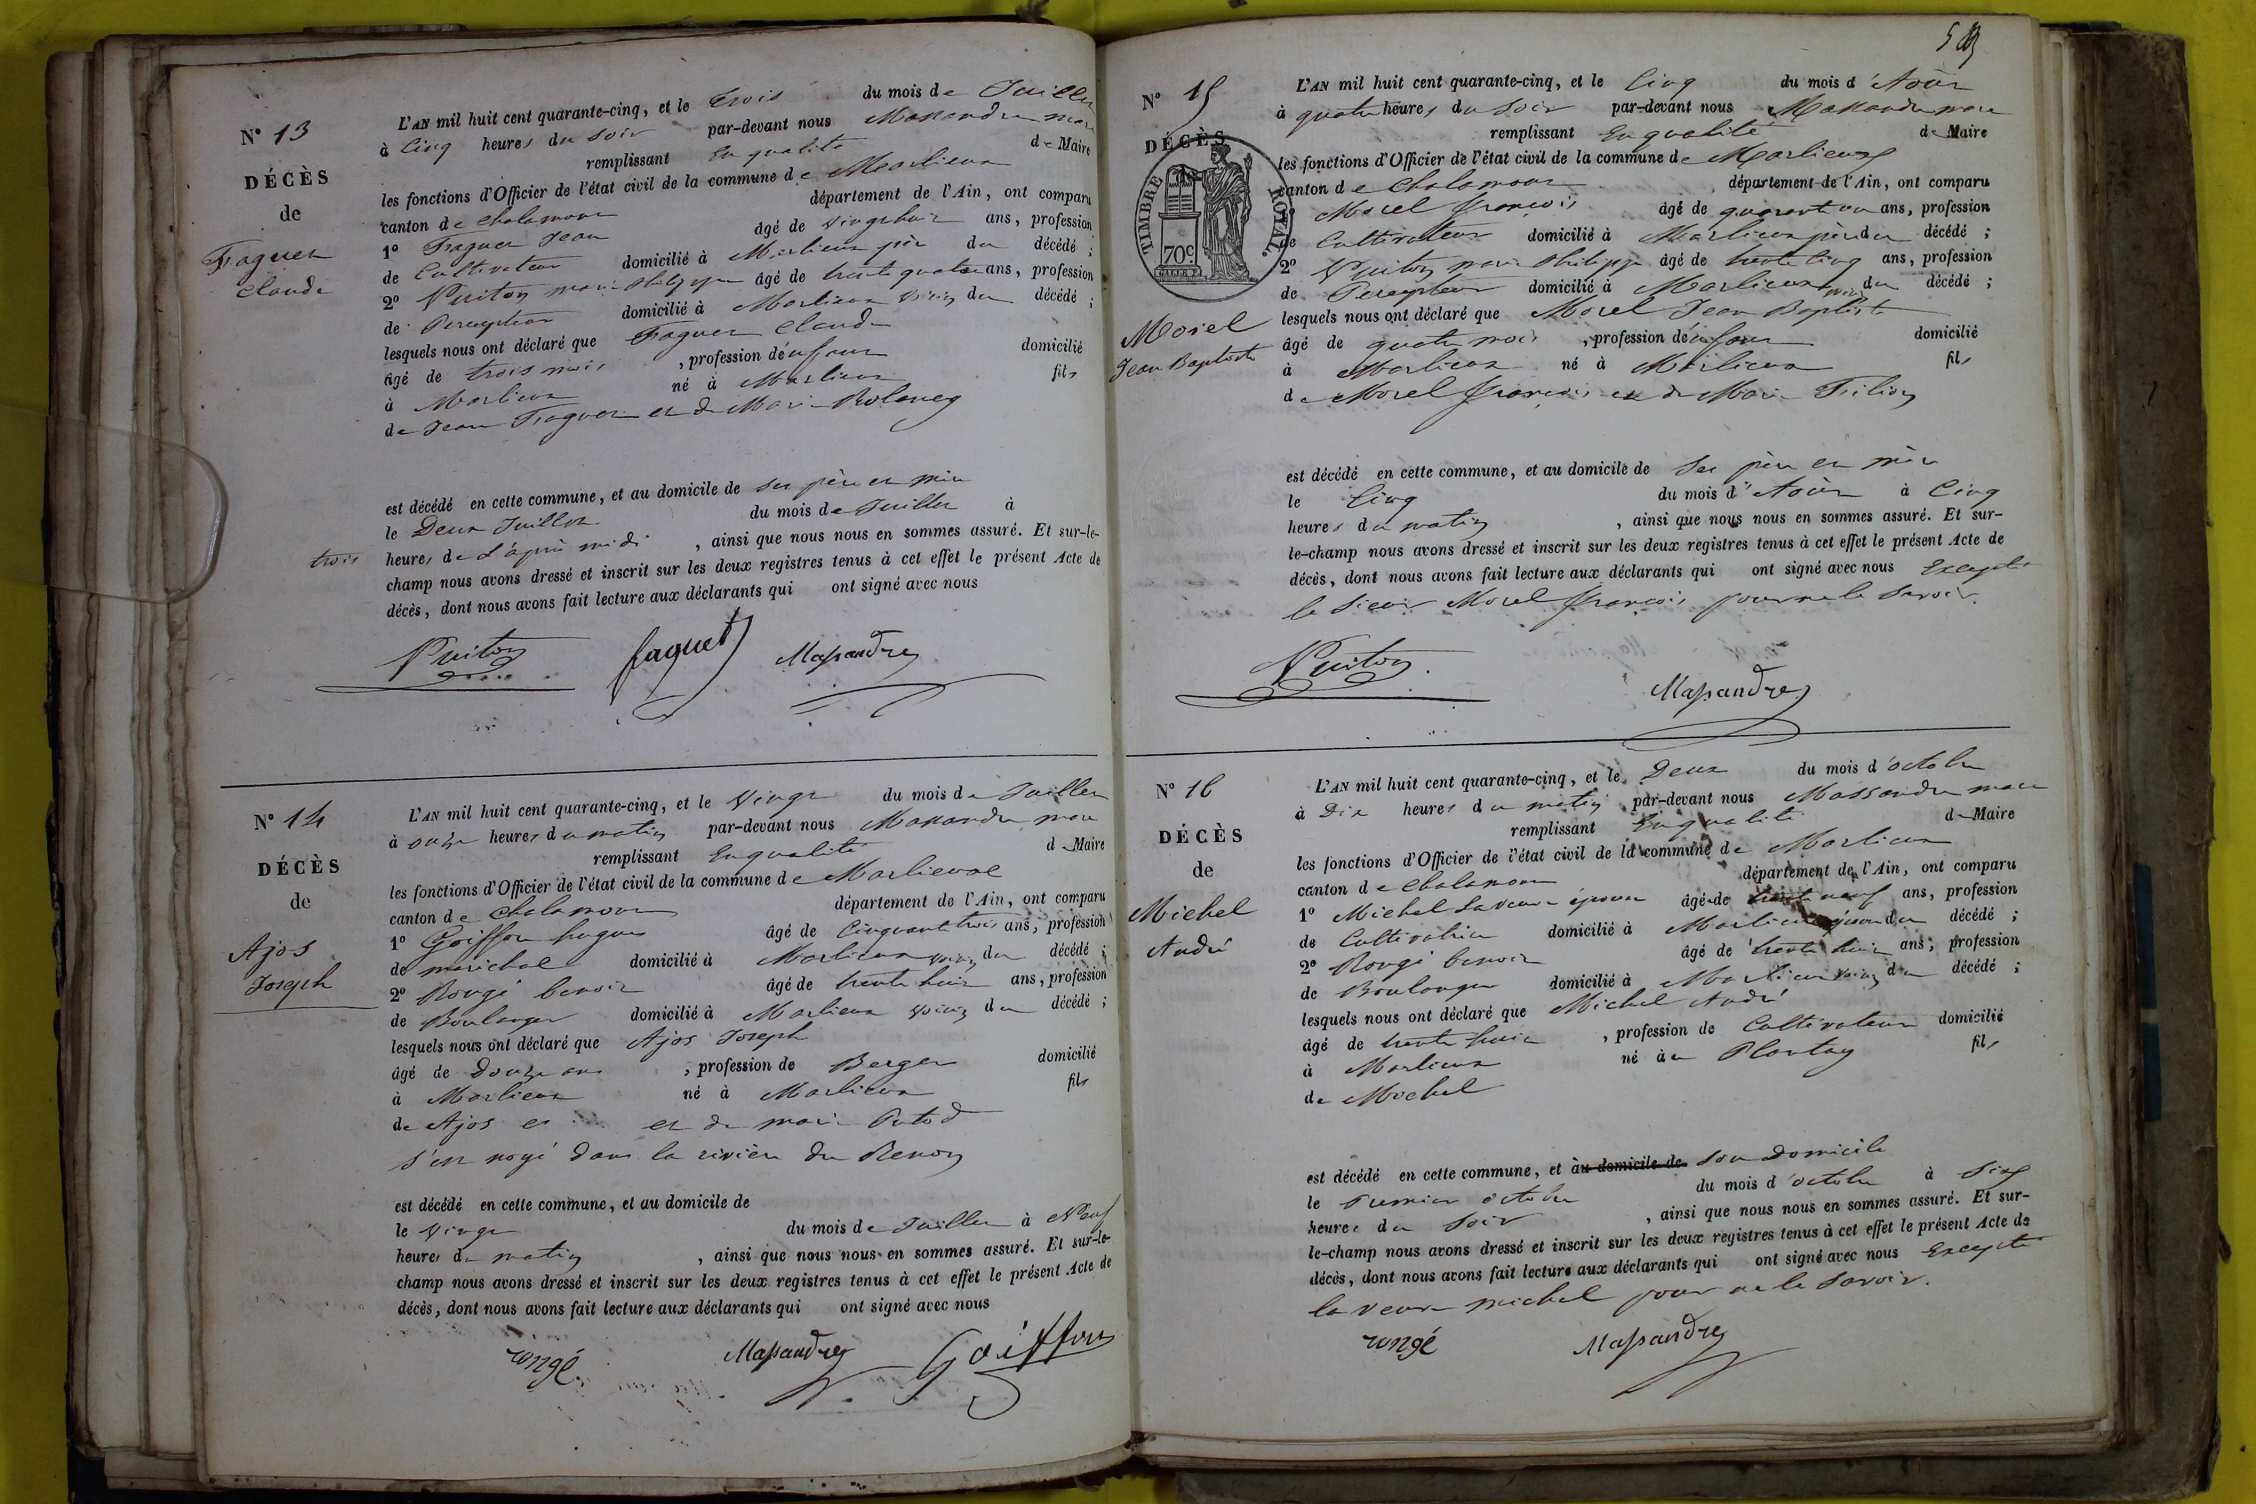 N° 13
DÉCÈS
de
Faguet
Claude
L'AN mil huit cent quarante-cinq, et le trois du mois de Juillet
à Cinq heures du soir par-devant nous Massandre maire
remplissant En qualité de Maire
les fonctions d'Officier de l'état civil de la commune de Marlieux
canton de Chalamont département de l'Ain, ont comparu
1° Faguet Jean âgé de vingt huit ans, profession
de Cultivateur domicilié à Marlieux père du décédé ;
2° Vuiton marie philippe âgé de trente quatre ans, profession
de Percepteur domicilié à Marlieux voisin du décédé ;
lesquels nous ont déclaré que Faguet Claude
âgé de trois mois , profession d'enfant domicilié
à Marlieux né à Marlieux fils
de Jean Faguet et de Marie
est décédé en cette commune, et au domicile de ses père et mère
le Deux Juillet du mois de Juillet à
trois heures de L'après midi , ainsi que nous nous en sommes assuré. Et sur-le-
champ nous avons dressé et inscrit sur les deux registres tenus à cet effet le présent Acte de
décès, dont nous avons fait lecture aux déclarants qui ont signé avec nous
Vuiton faguet Massandre
N° 14
DÉCÈS
de
Ajos
Joseph
L'AN mil huit cent quarante-cinq, et le vingt du mois de Juillet
à onze heures du matin par-devant nous Massandre maire
remplissant En qualité de Maire
les fonctions d'Officier de l'état civil de la commune de Marlieux
canton de Chalamont département de l'Ain, ont comparu
1° Goiffon hugues âgé de Cinquante trois ans, profession
de marichal domicilié à Marlieux voisin du décédé ;
2° Rongé benoit âgé de trente huit ans, profession
de Boulanger domicilié à Marlieux voisin du décédé ;
lesquels nous ont déclaré que Ajos Joseph
âgé de douze ans , profession de Berger domicilié
à Marlieux né à Marlieux fils
de Ajos et et de marie Putod
s'est noyé dans la rivière du Renon
est décédé en cette commune, et au domicile de
le vingt du mois de Juillet à Neuf
heures du matin , ainsi que nous nous en sommes assuré. Et sur-le-
champ nous avons dressé et inscrit sur les deux registres tenus à cet effet le présent Acte de
décès, dont nous avons fait lecture aux déclarants qui ont signé avec nous
rongé Massandre Goiffon
N° 15
DÉCÈS
de
TIMBRE ROYAL.
70c.
Morel
Jean Baptiste
L'AN mil huit cent quarante-cinq, et le Cinq du mois d'Août
à quatre heures du soir par-devant nous Massandre maire
remplissant En qualité de Maire
les fonctions d'Officier de l'état civil de la commune de Marlieux
canton de Chalamont département de l'Ain, ont comparu
Morel françois âgé de quarante un ans, profession
de Cultivateur domicilié à Marlieux père du décédé ;
2° Vuiton marie Philippe âgé de trente Cinq ans, profession
de Percepteur domicilié à Marlieux voisin du décédé ;
lesquels nous ont déclaré que Morel Jean Baptiste
âgé de quatre mois , profession d'enfant domicilié
à Marlieux né à Marlieux fils
de Morel françois et de Marie Filion
est décédé en cette commune, et au domicile de ses père et mère
le Cinq du mois d'Août à Cinq
heures du matin , ainsi que nous nous en sommes assuré. Et sur-
le-champ nous avons dressé et inscrit sur les deux registres tenus à cet effet le présent Acte de
décès, dont nous avons fait lecture aux déclarants qui ont signé avec nous Excepté
le sieur Morel françois pour ne le savoir.
Vuiton Massandre
N° 16
DÉCÈS
de
Michel
André
L'AN mil huit cent quarante-cinq, et le Deux du mois d'octobre
à Dix heures du matin par-devant nous Massandre maire
remplissant En qualité de Maire
les fonctions d'Officier de l'état civil de la commune de Marlieux
canton de Chalamont département de l'Ain, ont comparu
1° Michel La veuve épouse âgé de trente neuf ans, profession
de Cultivatrice domicilié à Marlieux épouse du décédé ;
2° Rongé benoit âgé de trente huit ans, profession
de Boulanger domicilié à Marlieux voisin du décédé ;
lesquels nous ont déclaré que Michel André
âgé de trente huit , profession de Cultivateur domicilié
à Marlieux né à au Plantay fils
de Michel
est décédé en cette commune, et au domicile de son domicile
le Premier octobre du mois d'octobre à Six
heures du soir , ainsi que nous nous en sommes assuré. Et sur-
le-champ nous avons dressé et inscrit sur les deux registres tenus à cet effet le présent Acte de
décès, dont nous avons fait lecture aux déclarants qui ont signé avec nous Excepté
la veuve michel pour ne le savoir.
rongé Massandre